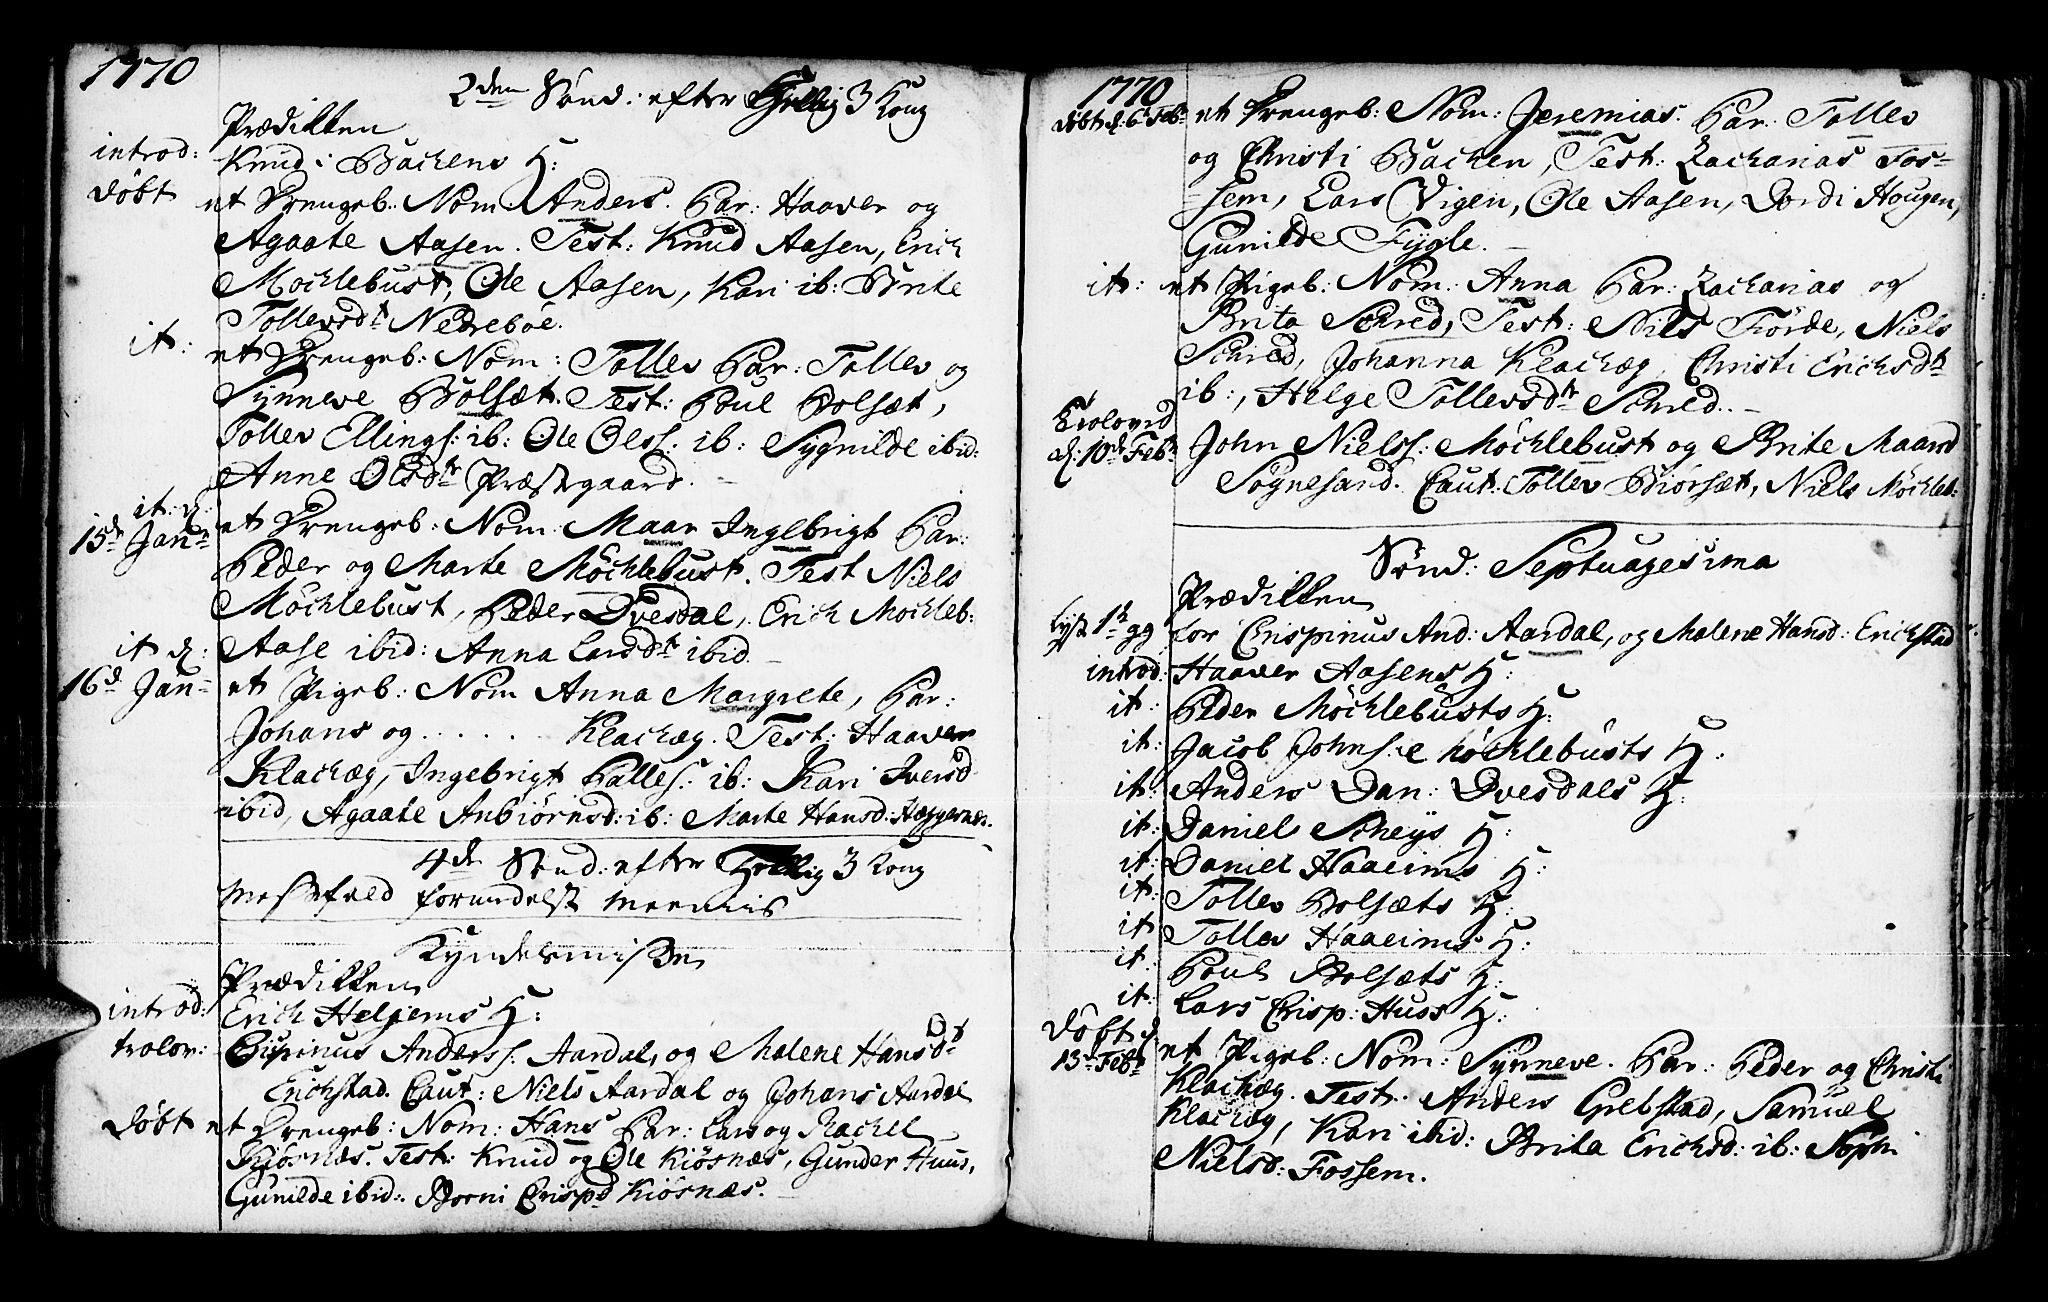 1770
2den Sønd: efter Hellig 3 Kong
Prædikken
introd: Knud i Bachens H:
døbt et Drengeb: Nom: Anders. Par: Haaver og
Agaate Aasen. Test: Knud Aasen, Erich
Mochlebust, Ole Aasen, Kari ib: Brite
Tollevsdtr Nedrebøe.
it: et Drengeb: Nom: Tollev Par: Tollev og
Synneve Bolsæt. Test: Poul Bolsæt,
Tollev Ellings: ib: Ole Olss: ib: Sygnilde ibid:
Anne Olsdtr Præstgaard.
it: d: 15de Janr et Drengeb: Nom: Maar Ingebrigt Par:
Peder og Marte Møchlebust. Test Niels
Møchlebust, Peder Dvesdal, Erich Mochleb:
Aase ibid: Anna Larsdtr ibid.
it d: 16d Jan et Pigeb: Nom Anna Margrete, Par:
Johans og . . . . . . Klachæg. Test: Haaver
Klachæg, Ingebrigt Palles: ib: Kari Iversd
ibid, Agaate Anbiørnsd: ib: Marte Hansd:
4de Sønd: efter Hellig 3 Kong
Messefald formedelst
Kyndelmissen
Prædikken
introd: Erich Helgems H:
trolov: Crispinus Anderss. Aardal, og Malene Hansdtr
Erichstad. Caut: Niels Aardal og Johans Aardal
døbt et Drengeb: Nom: Hans Par: Lars og Rachel
Kiøsnæs. Test: Knud og Ole Kiøsnæs, Gunder Huus,
Gunilde ibid: Borni Crispd Kiøsnæs.
1770
døbt d: 6te Feb: et Drengeb: Nom: Jeremias. Par: Tollev
og Christi Bachen, Test: Zacharias Fos-
sem, Lars Vigen, Ole Aasen, Dordi Hougen,
Gunilde Fygle.
it: et Pigeb: Nom: Anna Par: Zacharias og
Brita Schred, Test: Nils Førde, Niels
Schred, Johanna Klachæg, Christi Erichsdtr
ib:, Helge Tollevsdtr Schred.
Troloved d: 10de Febr John Nielss: Møchlebust og Brite Maarsd
Sognesand. Caut: Tollev Biørsæt, Niels Møchleb:
Sønd: Septuagesima
Prædikken
lyst 1te gg for Crispinus And: Aardal, og Malene Hansd: Erichstad
introd: Haaver Aasens H:
it: Peder Møchlebusts H:
it: Jacob Johns: Møchlebusts H:
it: Anders Dan: Dvesdals H:
it: Daniels Scheys H:
it: Daniel Haaeims H:
it: Tollev Bolsæts H:
it: Tollev Haaeims H:
it: Poul Bolsæts H:
it: Lars Crisp: Huss H:
døbt d 13de Febr et Pigeb: Nom: Synneve. Par: Peder og Christi
Klachæg. Test: Anders Grebstad, Samuel
Klachæg, Kari ibid: Brita Erichsd: ib: Sophi
Nielsd: Fossem.